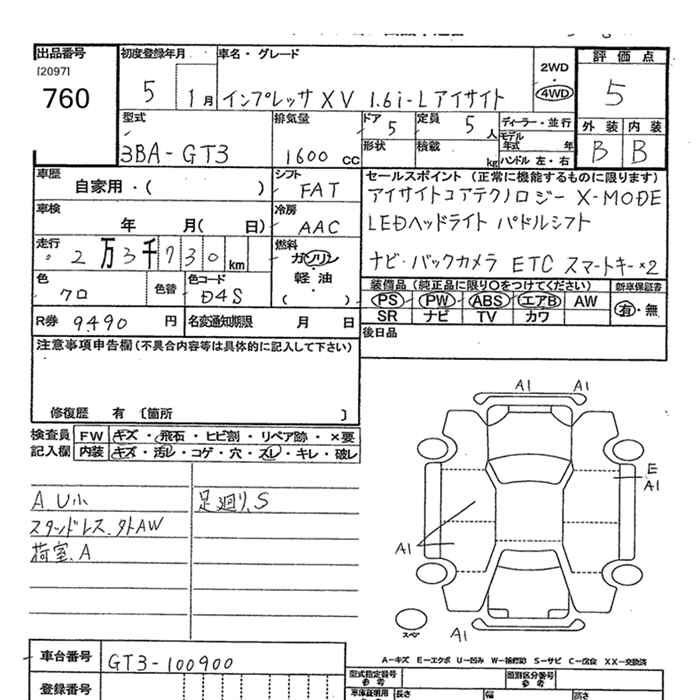 出品番号
[2097]
760
初度登録年月
5 1月
車名・グレード
インプレッサ XV 1.6i-L アイサイト
2WD
4WD
評価点
5
外装 内装
B B
型式
3BA-GT3
排気量
1600 CC
ドア
5
定員
5人
形状
積載
kg
ディーラー・並行
モデル年式 年
ハンドル 左・右
車歴
自家用・( )
シフト
FAT
車検
年 月( 日)
冷房
AAC
走行
2万3千730km
燃料
ガソリン
軽油
( )
色
クロ
色替
色コード
D4S
R券 9490 円
名変通知期限 月 日
セールスポイント(正常に機能するものに限ります)
アイサイトコアテクノロジー X-MODE
LEDヘッドライト パドルシフト
ナビ・バックカメラ ETC スマートキー×2
装備品(純正品に限り○をつけてください)
PS PW ABS エアB AW
SR ナビ TV カワ
新車保証書
有・無
後日品
注意事項申告欄(不具合内容等は具体的に記入して下さい)
修復歴 有 〔箇所 〕
検査員記入欄
FW キズ・飛石・ヒビ割・リペア跡・×要
内装 キズ・汚レ・コゲ・穴・スレ・キレ・破レ
A U小
スタッドレス、外AW
荷室 A
足廻り、S
A1 A1
E
A1
A1
A1
スペア
A-キズ E-エクボ U-凹み W-補修跡 S-サビ C-腐食 XX-交換済
車台番号
GT3-100900
登録番号
型式指定番号 参考
類別区分番号 参考
車庫証明用 長さ 幅 高さ